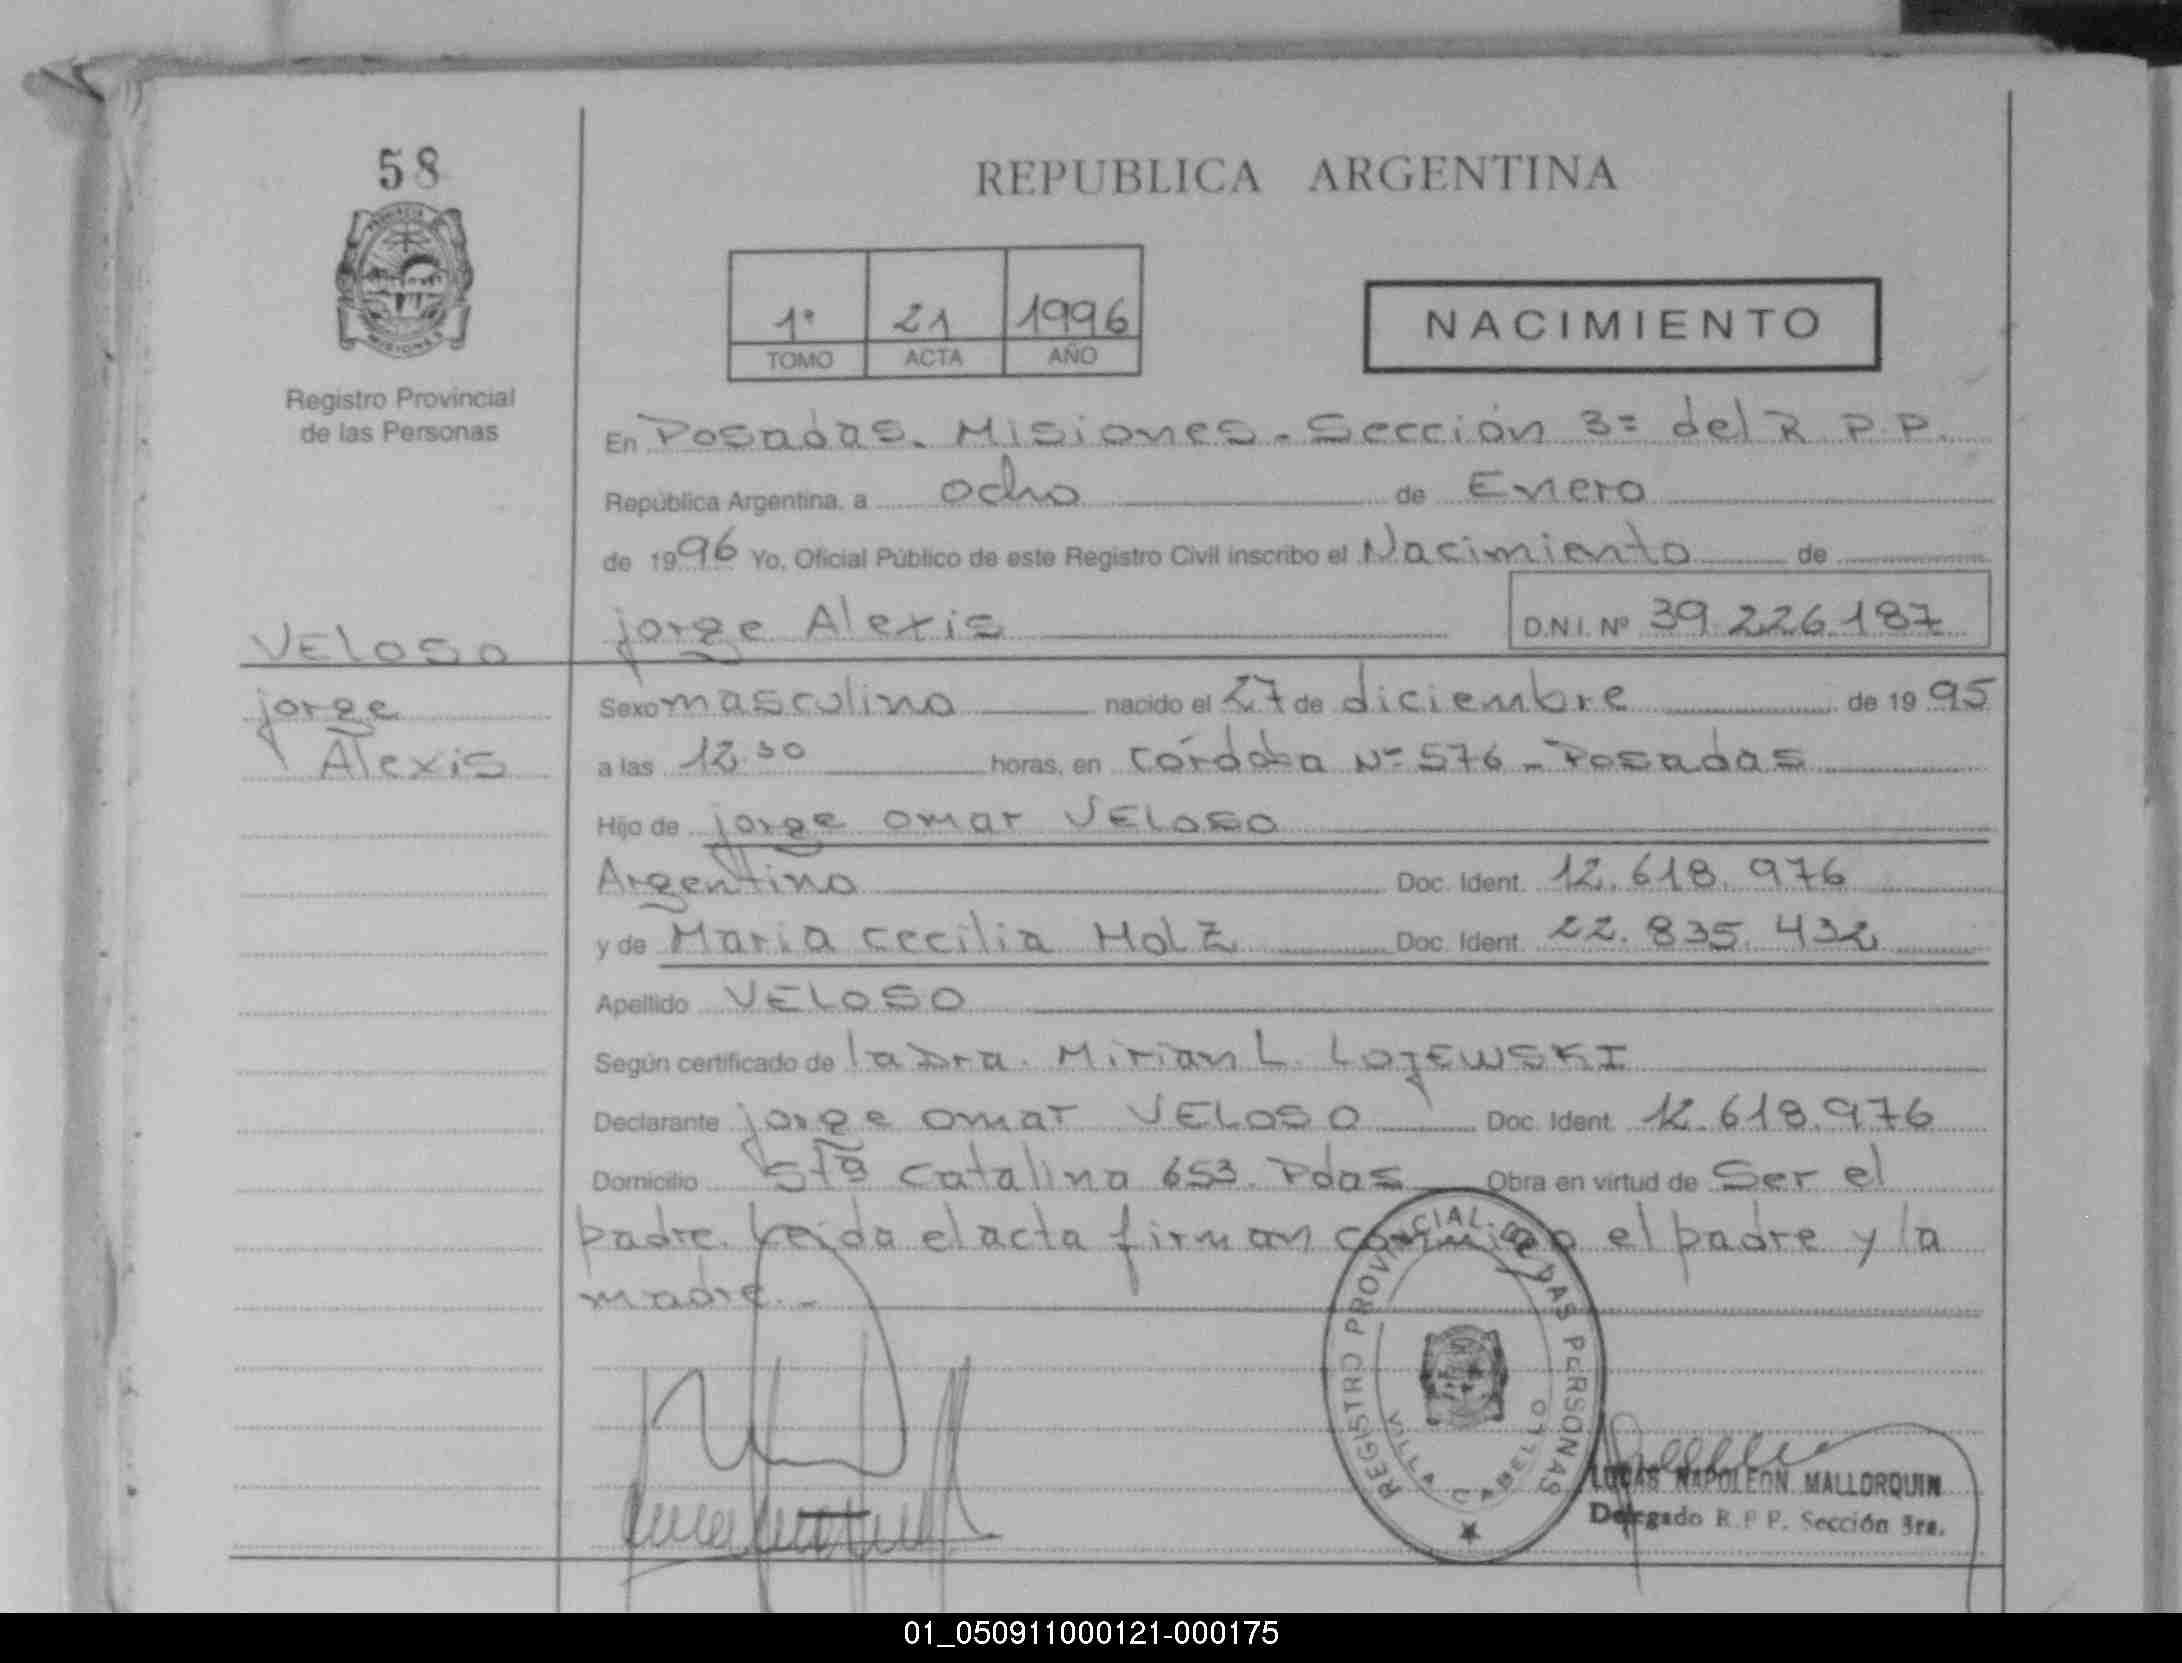 58
REPUBLICA ARGENTINA
1º 21 1996
TOMO ACTA AÑO
NACIMIENTO
Registro Provincial
de las Personas
En Posadas. Misiones. Sección 3= del R.P.P.
República Argentina, a ocho de Enero
de 1996 Yo, Oficial Público de este Registro Civil inscribo el Nacimiento de
VELOSO
jorge Alexis D.N.I. Nº 39.226.187
jorge
Alexis
Sexo masculino nacido el 27 de diciembre de 1995
a las 12.30 horas, en Córdoba Nº 576 - Posadas
Hijo de jorge omar VELOSO
Argentino Doc. Ident. 12.618.976
y de Maria cecilia HolZ Doc. Ident. 22.835.432
Apellido VELOSO
Según certificado de la Dra. Mirian L. LOJEWSKI
Declarante jorge omar VELOSO Doc. Ident. 12.618.976
Domicilio Stª Catalina 653. Pdas Obra en virtud de Ser el
padre. Leida el acta firman conmigo el padre y la
madre.-
REGISTRO PROVINCIAL DE LAS PERSONAS
VILLA CABELLO
LUCAS NAPOLEON MALLORQUIN
Delegado R.P.P. Sección 3ra.
01_050911000121-000175